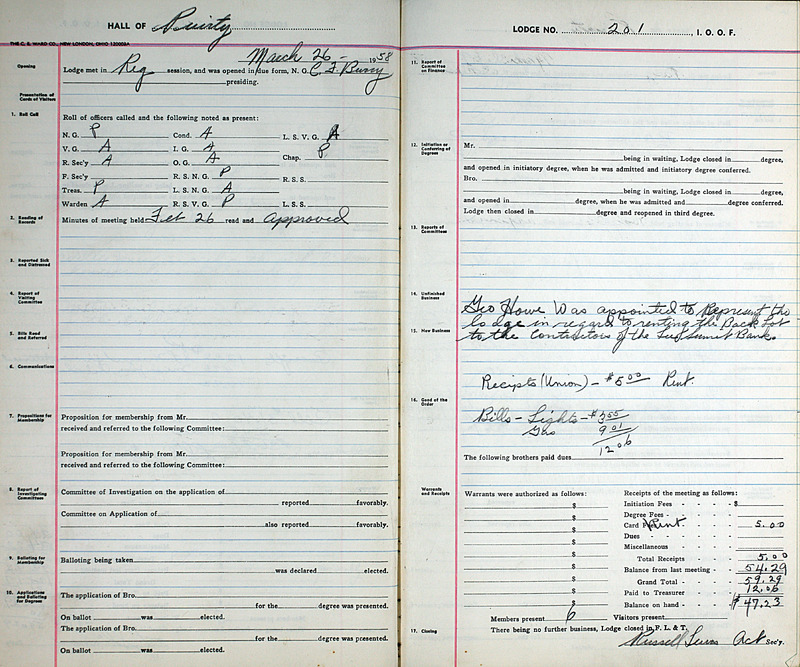 HALL OF Purity
THE C. E. WARD CO., NEW LONDON, OHIO
March 26 - 1958
Opening
Lodge met in Reg session, and was opened in due form, N. G.
presiding.
Presentation of Cards of Visitors
1. Roll Call
Roll of officers called and the following noted as present:
N. G. P Cond. A L. S. V. G. A
V. G. A I. G. A Chap. P
R. Sec'y A O. G. A
F. Sec'y R. S. N. G. P R. S. S.
Treas. P L. S. N. G. A
Warden A R. S. V. G. P L. S. S.
2. Reading of Records
Minutes of meeting held Feb 26 read and approved
3. Reported Sick and Distressed
4. Report of Visiting Committee
5. Bills Read and Referred
6. Communications
7. Propositions for Membership
Proposition for membership from Mr.
received and referred to the following Committee:
Proposition for membership from Mr.
received and referred to the following Committee:
8. Report of Investigating Committees
Committee of Investigation on the application of
reported favorably.
Committee on Application of
also reported favorably.
9. Balloting for Membership
Balloting being taken
was declared elected.
10. Applications and Balloting for Degrees
The application of Bro.
for the degree was presented.
On ballot was elected.
The application of Bro.
for the degree was presented.
On ballot was elected.
LODGE NO. 201 I. O. O. F.
11. Report of Committee on Finance
12. Initiation or Conferring of Degrees
Mr.
being in waiting, Lodge closed in degree,
and opened in initiatory degree, when he was admitted and initiatory degree conferred.
Bro.
being in waiting, Lodge closed in degree,
and opened in degree, when he was admitted and degree conferred.
Lodge then closed in degree and reopened in third degree.
13. Reports of Committees
14. Unfinished Business
Geo Howe Was appointed to Represent the
lodge in regard to renting the Back Lot
15. New Business
to the Contractors of the Lees Summit Bank
Recipts (Union) - $5.00 Rent.
16. Good of the Order
Bills - Lights - $3.05
Gas 9.01
12.06
The following brothers paid dues
Warrants and Receipts
Warrants were authorized as follows:
$
$
$
$
$
$
$
$
$
Receipts of the meeting as follows:
Initiation Fees - - - - $
Degree Fees - - - - -
Card Rent - - - - 5.00
Dues - - - - -
Miscellaneous - - - - -
Total Receipts - - - 5.00
Balance from last meeting - - 54.29
Grand Total - - - 59.29
Paid to Treasurer - - - 12.06
Balance on hand - - - $47.23
Members present 6 Visitors present
17. Closing
There being no further business, Lodge closed in F. L. & T.
Russell Act Sec'y.